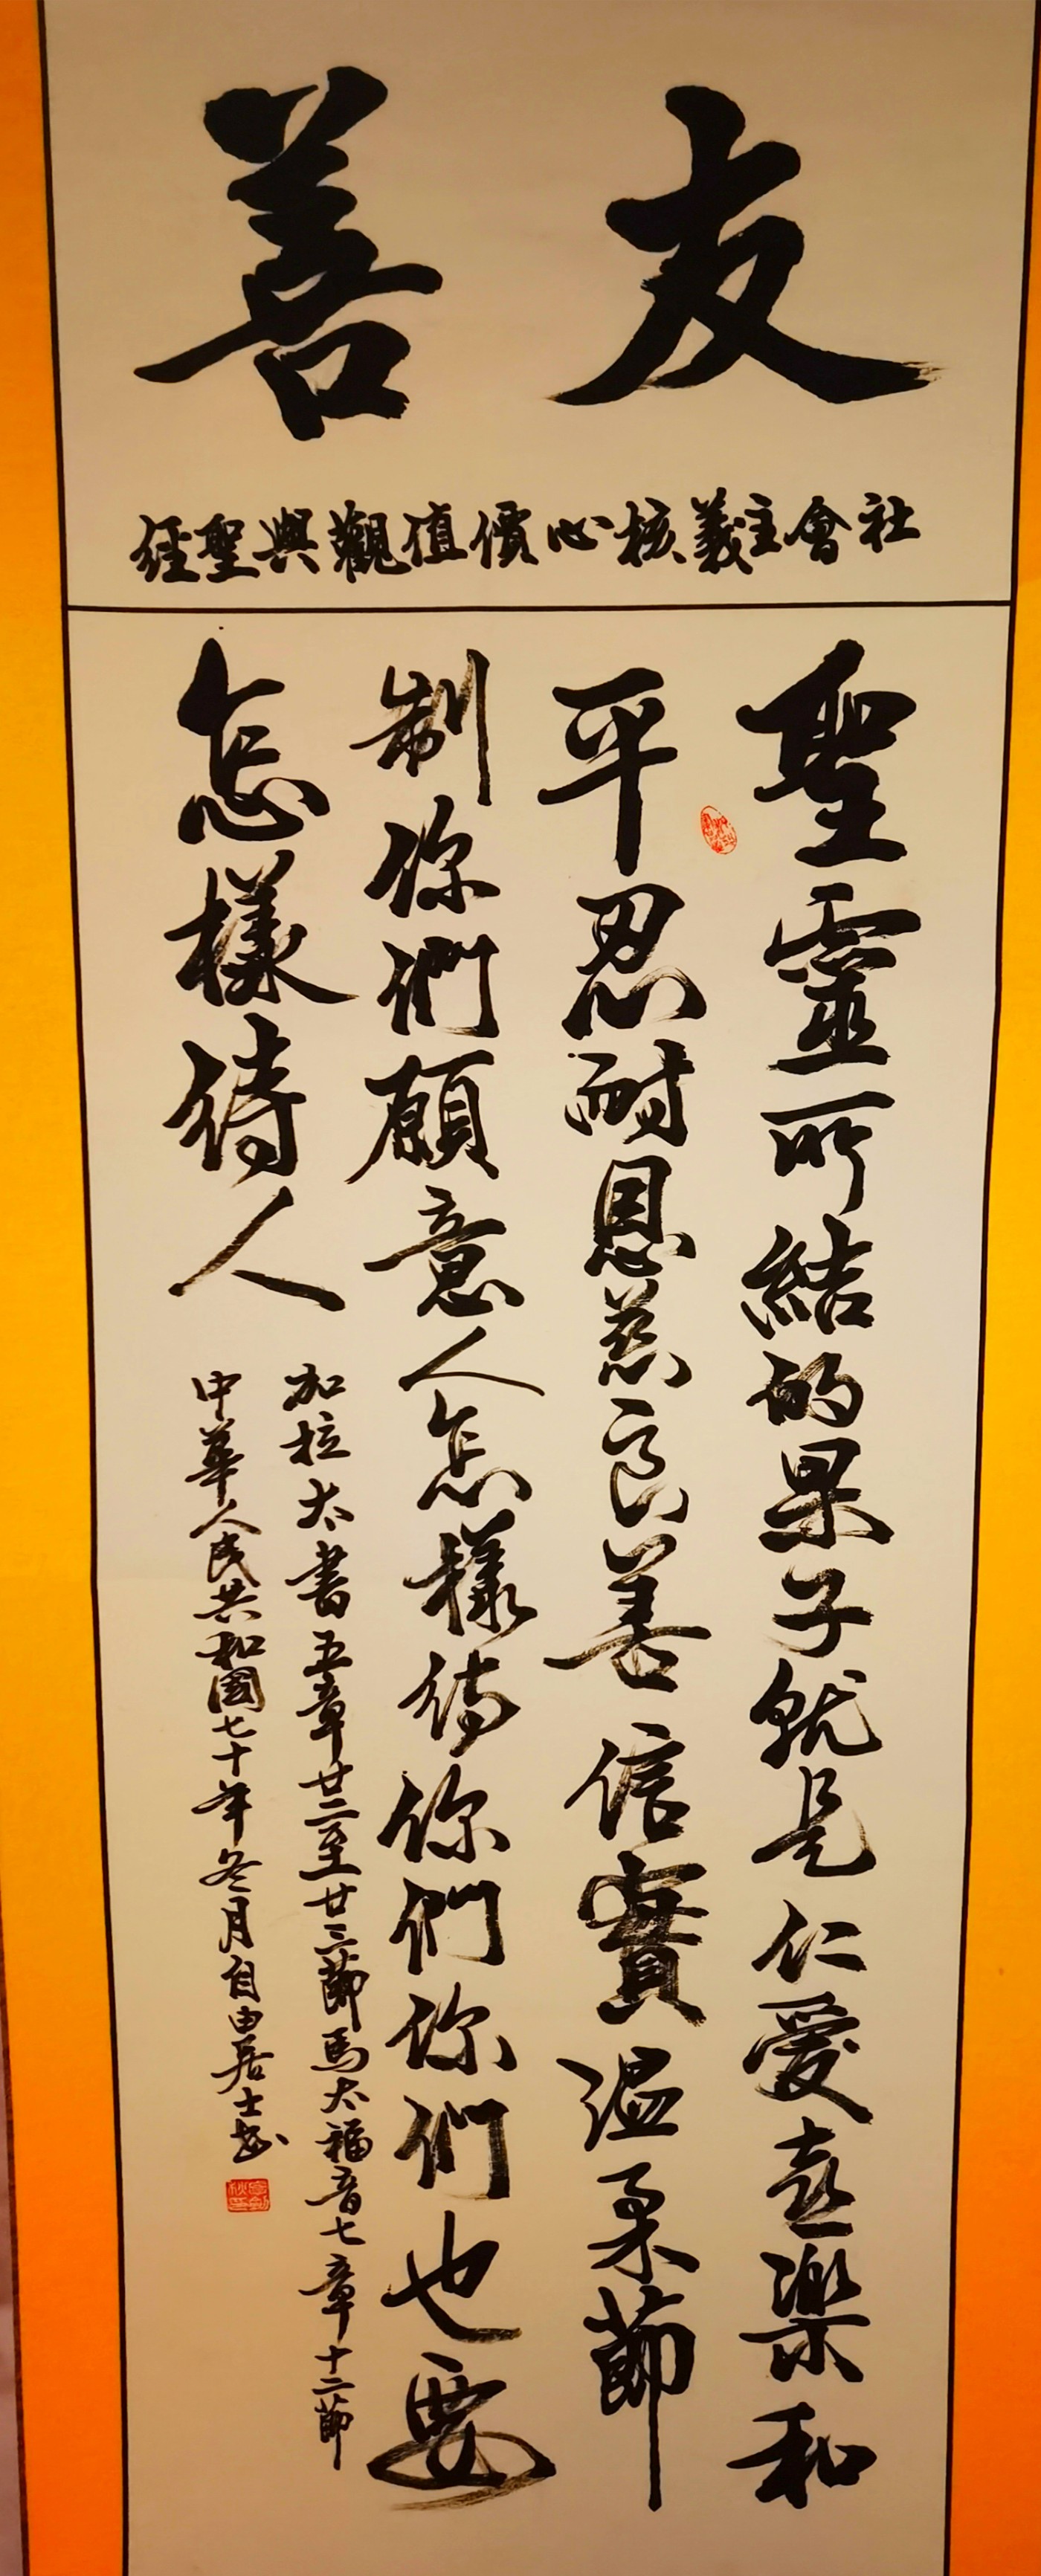 友善
社會主義核心價值觀與聖經
聖靈所結的果子就是仁愛喜樂和
平忍耐恩慈良善信實溫柔節
制你們願意人怎樣待你們你們也要
怎樣待人
加拉太書五章廿二至廿三節馬太福音七章十二節
中華人民共和國七十年冬月自由居士書